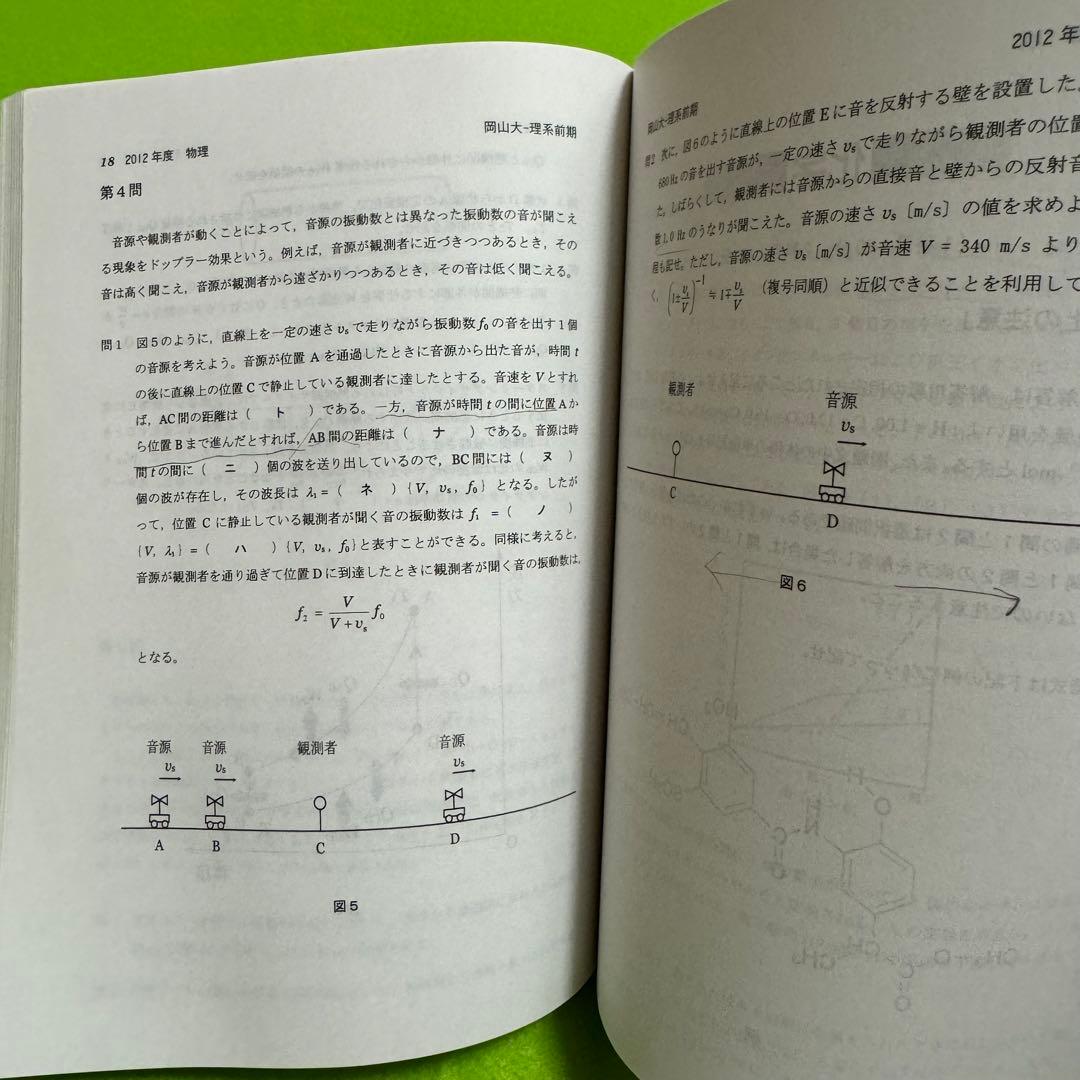 18 2012年度 物理
岡山大-理系前期
第4問
音源や観測者が動くことによって，音源の振動数とは異なった振動数の音が聞こえ
る現象をドップラー効果という。例えば，音源が観測者に近づきつつあるとき，その
音は高く聞こえ，音源が観測者から遠ざかりつつあるとき，その音は低く聞こえる。
問1 図5のように，直線上を一定の速さ υs で走りながら振動数 f0 の音を出す1個
の音源を考えよう。音源が位置 A を通過したときに音源から出た音が，時間 t
の後に直線上の位置 C で静止している観測者に達したとする。音速を V とすれ
ば，AC間の距離は（ ト ）である。一方，音源が時間 t の間に位置 A か
ら位置 B まで進んだとすれば，AB間の距離は（ ナ ）である。音源は時
間 t の間に（ ニ ）個の波を送り出しているので，BC間には（ ヌ ）
個の波が存在し，その波長は λ1 =（ ネ ）{V, υs, f0} となる。したが
って，位置 C に静止している観測者が聞く音の振動数は f1 =（ ノ ）
{V, λ1} =（ ハ ）{V, υs, f0} と表すことができる。同様に考えると，
音源が観測者を通り過ぎて位置 D に到達したときに観測者が聞く音の振動数は，
f2 = V/(V + υs) f0
となる。
音源 音源 観測者 音源
υs υs υs
A B C D
図5
2012年
岡山大-理系前期
問2 次に，図6のように直線上の位置 E に音を反射する壁を設置した。
680 Hz の音を出す音源が，一定の速さ υs で走りながら観測者の位置
た。しばらくして，観測者には音源からの直接音と壁からの反射音
数 1.0 Hz のうなりが聞こえた。音源の速さ υs〔m/s〕の値を求めよ
程も記せ。ただし，音源の速さ υs〔m/s〕が音速 V = 340 m/s より
く，(1±υs/V)^-1 ≒ 1∓υs/V （複号同順）と近似できることを利用して
観測者 音源
υs
C D
図6